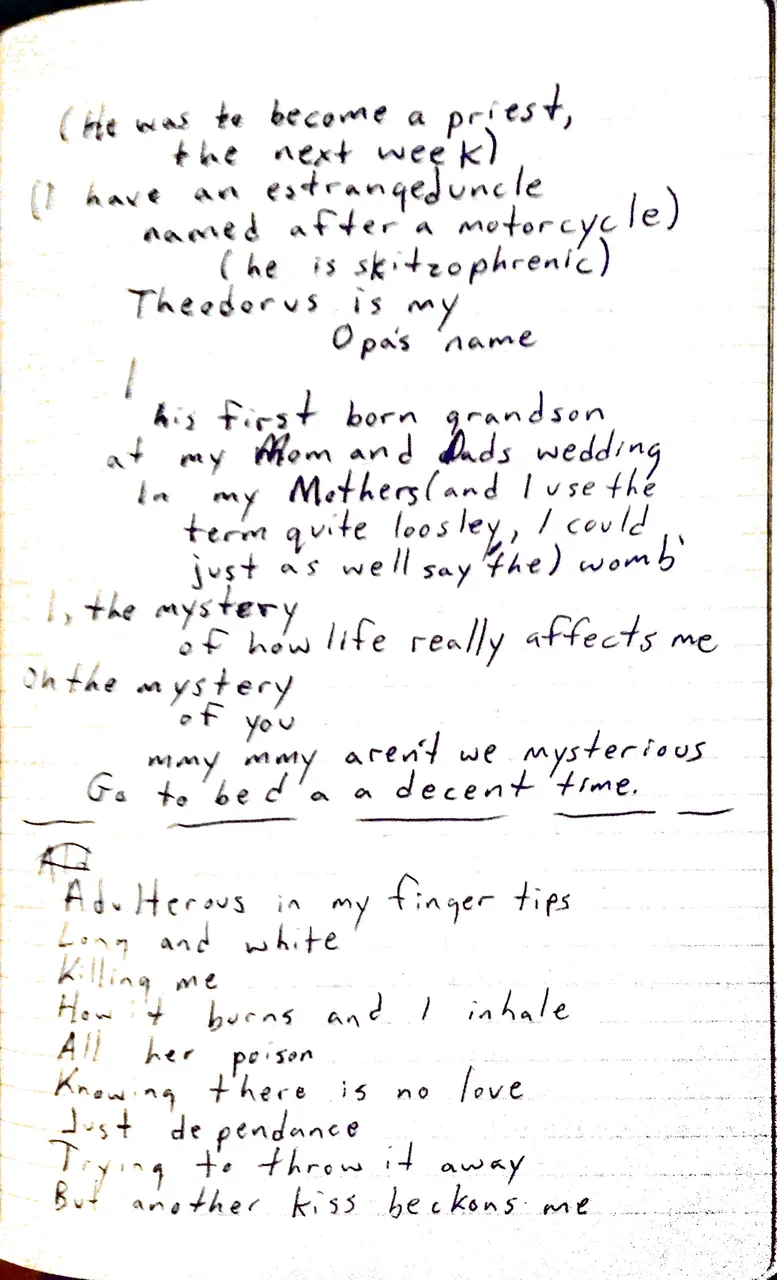 (He was to become a priest,
the next week)
(I have an estranged uncle
named after a motorcycle)
(he is skitzophrenic)
Theodorus is my
Opa's name
I
his first born grandson
at my Mom and Dads wedding
In my Mothers (and I use the
term quite loosley, I could
just as well say the) womb
I, the mystery
of how life really affects me
Oh the mystery
of you
mmy mmy aren't we mysterious
Go to bed a a decent time.
Adulterous in my finger tips
Long and white
Killing me
How it burns and I inhale
All her poison
Knowing there is no love
Just dependance
Trying to throw it away
But another kiss beckons me